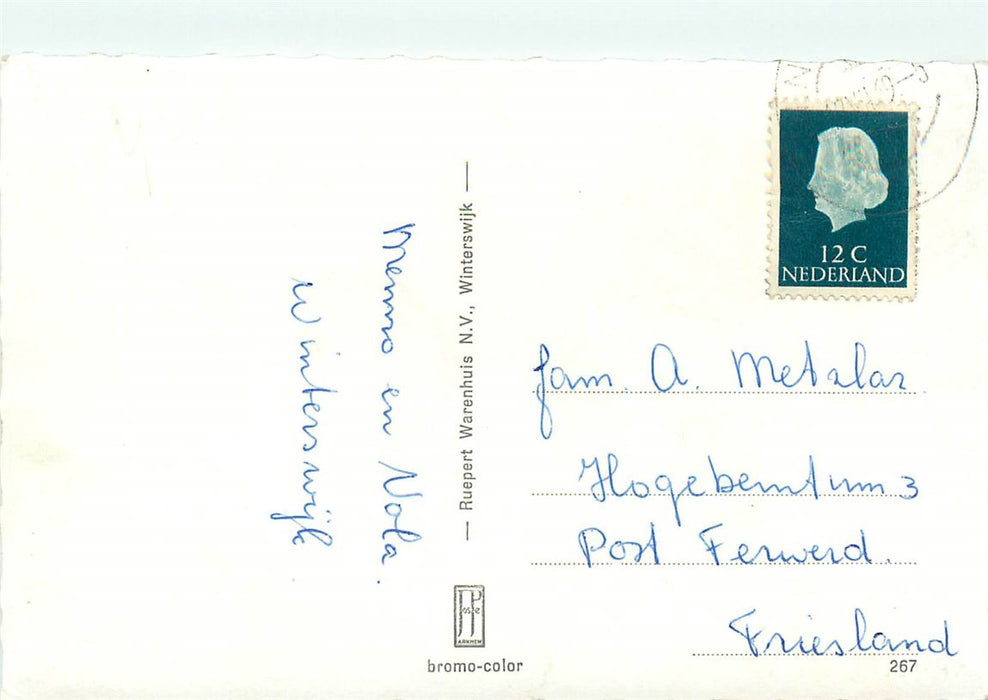 Menno en Nola.
Winterswijk
— Ruepert Warenhuis N.V., Winterswijk —
12 C
NEDERLAND
fam. A. Metzlar
Hogebeintum 3
Post Ferwerd.
Friesland
ARNHEM
bromo-color
267